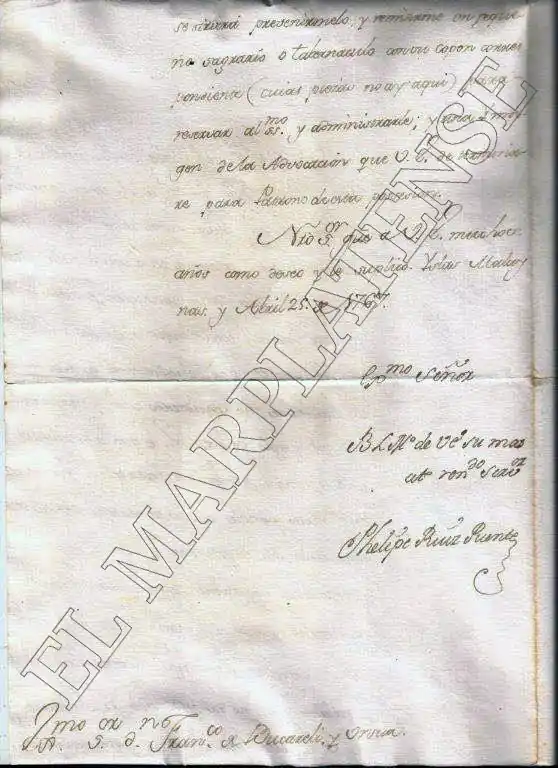 se servirá presentarmelo, y remitirme un peque
ño sagrario o tabernaculo con su copon corres
pondiente (cuias piezas no ay aqui) para
reservar al SS.mo y administrarle; y una Ima
gen de la Advocacion que V. E. de
re para Patrono de esta poseſsion.
Ntro S.or gue a V. E. muchos
años como deseo y le suplico. Yslas Malvi
nas, y Abril 25. de 1767.
Exmo Señor
B L M.o de Ve.a su mas
at.o ren.do Serv.or
Phelipe Ruiz Puente
Exmo S.or D.n Fran.co de Bucareli, y Ursua.
EL MARPLATENSE